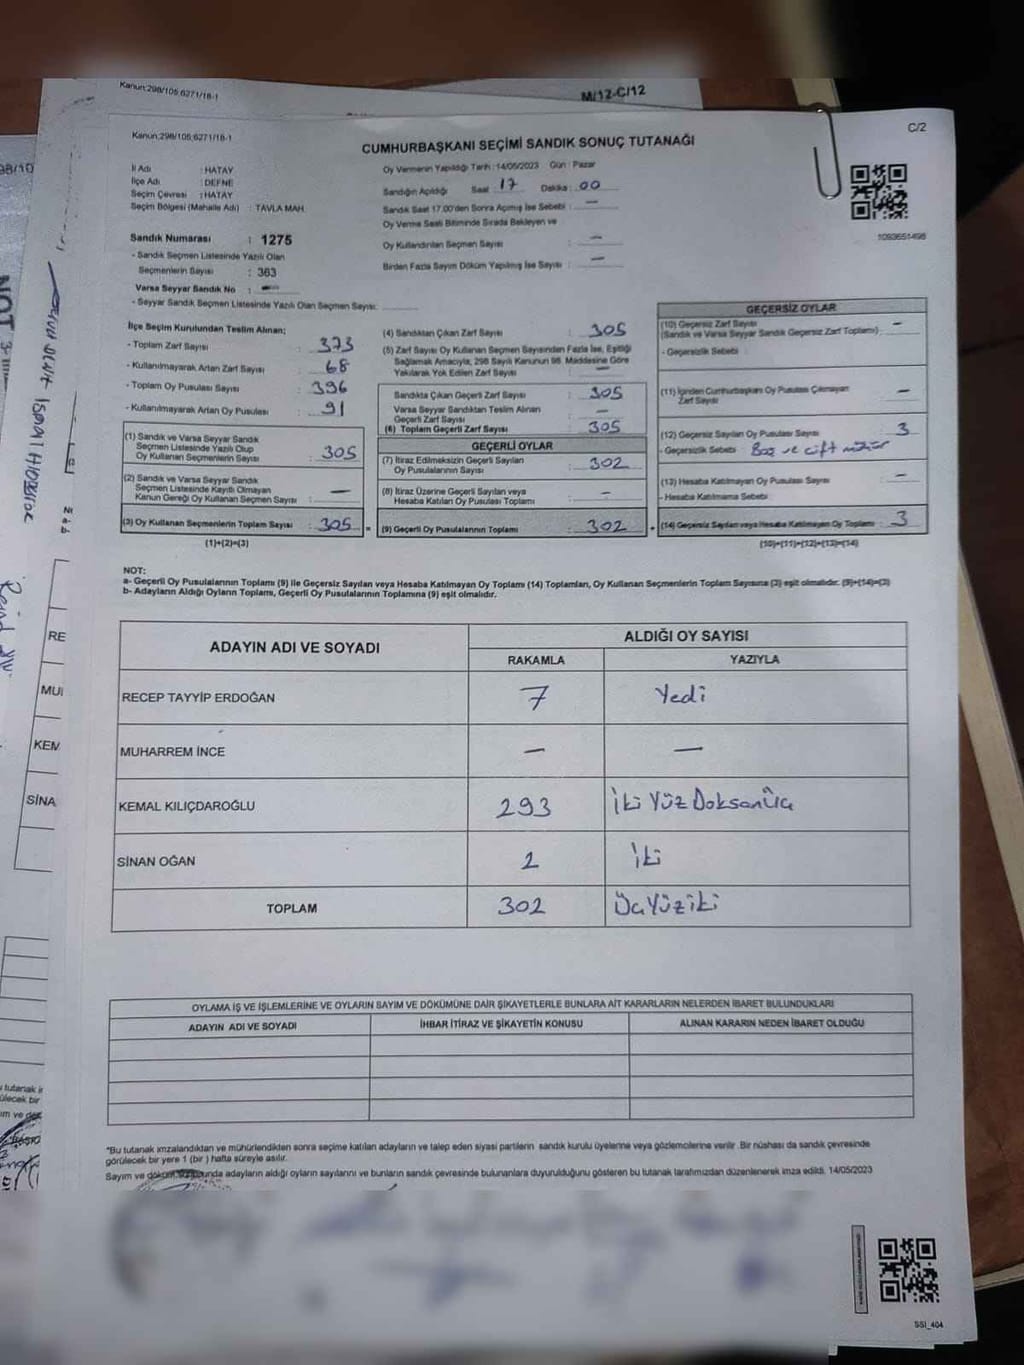 Kanun:298/105;6271/18-1
M/12-C/12
Kanun:298/105;6271/18-1
C/2
CUMHURBAŞKANI SEÇİMİ SANDIK SONUÇ TUTANAĞI
İl Adı : HATAY
İlçe Adı : DEFNE
Seçim Çevresi : HATAY
Seçim Bölgesi (Mahalle Adı) : TAVLA MAH.
Oy Vermenin Yapıldığı Tarih : 14/05/2023 Gün : Pazar
Sandığın Açıldığı Saat : 17 Dakika : 00
Sandık Saat 17.00'den Sonra Açılmış İse Sebebi : —
Oy Verme Saati Bitiminde Sırada Bekleyen ve
Oy Kullandırılan Seçmen Sayısı : —
Birden Fazla Sayım Döküm Yapılmış İse Sayısı : —
1093651498
Sandık Numarası : 1275
- Sandık Seçmen Listesinde Yazılı Olan
Seçmenlerin Sayısı : 363
Varsa Seyyar Sandık No : —
- Seyyar Sandık Seçmen Listesinde Yazılı Olan Seçmen Sayısı:
İlçe Seçim Kurulundan Teslim Alınan;
- Toplam Zarf Sayısı : 373
- Kullanılmayarak Artan Zarf Sayısı : 68
- Toplam Oy Pusulası Sayısı : 396
- Kullanılmayarak Artan Oy Pusulası : 91
(1) Sandık ve Varsa Seyyar Sandık
Seçmen Listesinde Yazılı Olup
Oy Kullanan Seçmenlerin Sayısı : 305
(2) Sandık ve Varsa Seyyar Sandık
Seçmen Listesinde Kayıtlı Olmayan
Kanun Gereği Oy Kullanan Seçmen Sayısı : —
(3) Oy Kullanan Seçmenlerin Toplam Sayısı : 305 =
(1)+(2)=(3)
(4) Sandıktan Çıkan Zarf Sayısı : 305
(5) Zarf Sayısı Oy Kullanan Seçmen Sayısından Fazla İse, Eşitliği
Sağlamak Amacıyla, 298 Sayılı Kanunun 98. Maddesine Göre
Yakılarak Yok Edilen Zarf Sayısı : —
Sandıkta Çıkan Geçerli Zarf Sayısı : 305
Varsa Seyyar Sandıktan Teslim Alınan
Geçerli Zarf Sayısı : —
(6) Toplam Geçerli Zarf Sayısı : 305
GEÇERLİ OYLAR
(7) İtiraz Edilmeksizin Geçerli Sayılan
Oy Pusulalarının Sayısı : 302
(8) İtiraz Üzerine Geçerli Sayılan veya
Hesaba Katılan Oy Pusulası Toplamı : —
(9) Geçerli Oy Pusulalarının Toplamı : 302 +
GEÇERSİZ OYLAR
(10) Geçersiz Zarf Sayısı : —
(Sandık ve Varsa Seyyar Sandık Geçersiz Zarf Toplamı)
- Geçersizlik Sebebi :
(11) İçinden Cumhurbaşkanı Oy Pusulası Çıkmayan
Zarf Sayısı : —
(12) Geçersiz Sayılan Oy Pusulası Sayısı : 3
- Geçersizlik Sebebi : Boş ve çift mühür
(13) Hesaba Katılmayan Oy Pusulası Sayısı : —
- Hesaba Katılmama Sebebi :
(14) Geçersiz Sayılan veya Hesaba Katılmayan Oy Toplamı : 3
(10)+(11)+(12)+(13)=(14)
NOT:
a- Geçerli Oy Pusulalarının Toplamı (9) ile Geçersiz Sayılan veya Hesaba Katılmayan Oy Toplamı (14) Toplamları, Oy Kullanan Seçmenlerin Toplam Sayısına (3) eşit olmalıdır. (9)+(14)=(3)
b- Adayların Aldığı Oyların Toplamı, Geçerli Oy Pusulalarının Toplamına (9) eşit olmalıdır.
ADAYIN ADI VE SOYADI
ALDIĞI OY SAYISI
RAKAMLA YAZIYLA
RECEP TAYYİP ERDOĞAN 7 Yedi
MUHARREM İNCE — —
KEMAL KILIÇDAROĞLU 293 İki Yüz Doksan Üç
SİNAN OĞAN 2 İki
TOPLAM 302 Üç Yüz iki
OYLAMA İŞ VE İŞLEMLERİNE VE OYLARIN SAYIM VE DÖKÜMÜNE DAİR ŞİKAYETLERLE BUNLARA AİT KARARLARIN NELERDEN İBARET BULUNDUKLARI
ADAYIN ADI VE SOYADI İHBAR İTİRAZ VE ŞİKAYETİN KONUSU ALINAN KARARIN NEDEN İBARET OLDUĞU
*Bu tutanak imzalandıktan ve mühürlendikten sonra seçime katılan adayların ve talep eden siyasi partilerin sandık kurulu üyelerine veya gözlemcilerine verilir. Bir nüshası da sandık çevresinde
görülecek bir yere 1 (bir ) hafta süreyle asılır.
Sayım ve döküm sonunda adayların aldığı oyların sayılarını ve bunların sandık çevresinde bulunanlara duyurulduğunu gösteren bu tutanak tarafımızdan düzenlenerek imza edildi. 14/05/2023
SSİ_404
NOT
RE
MU
KEM
SİNA